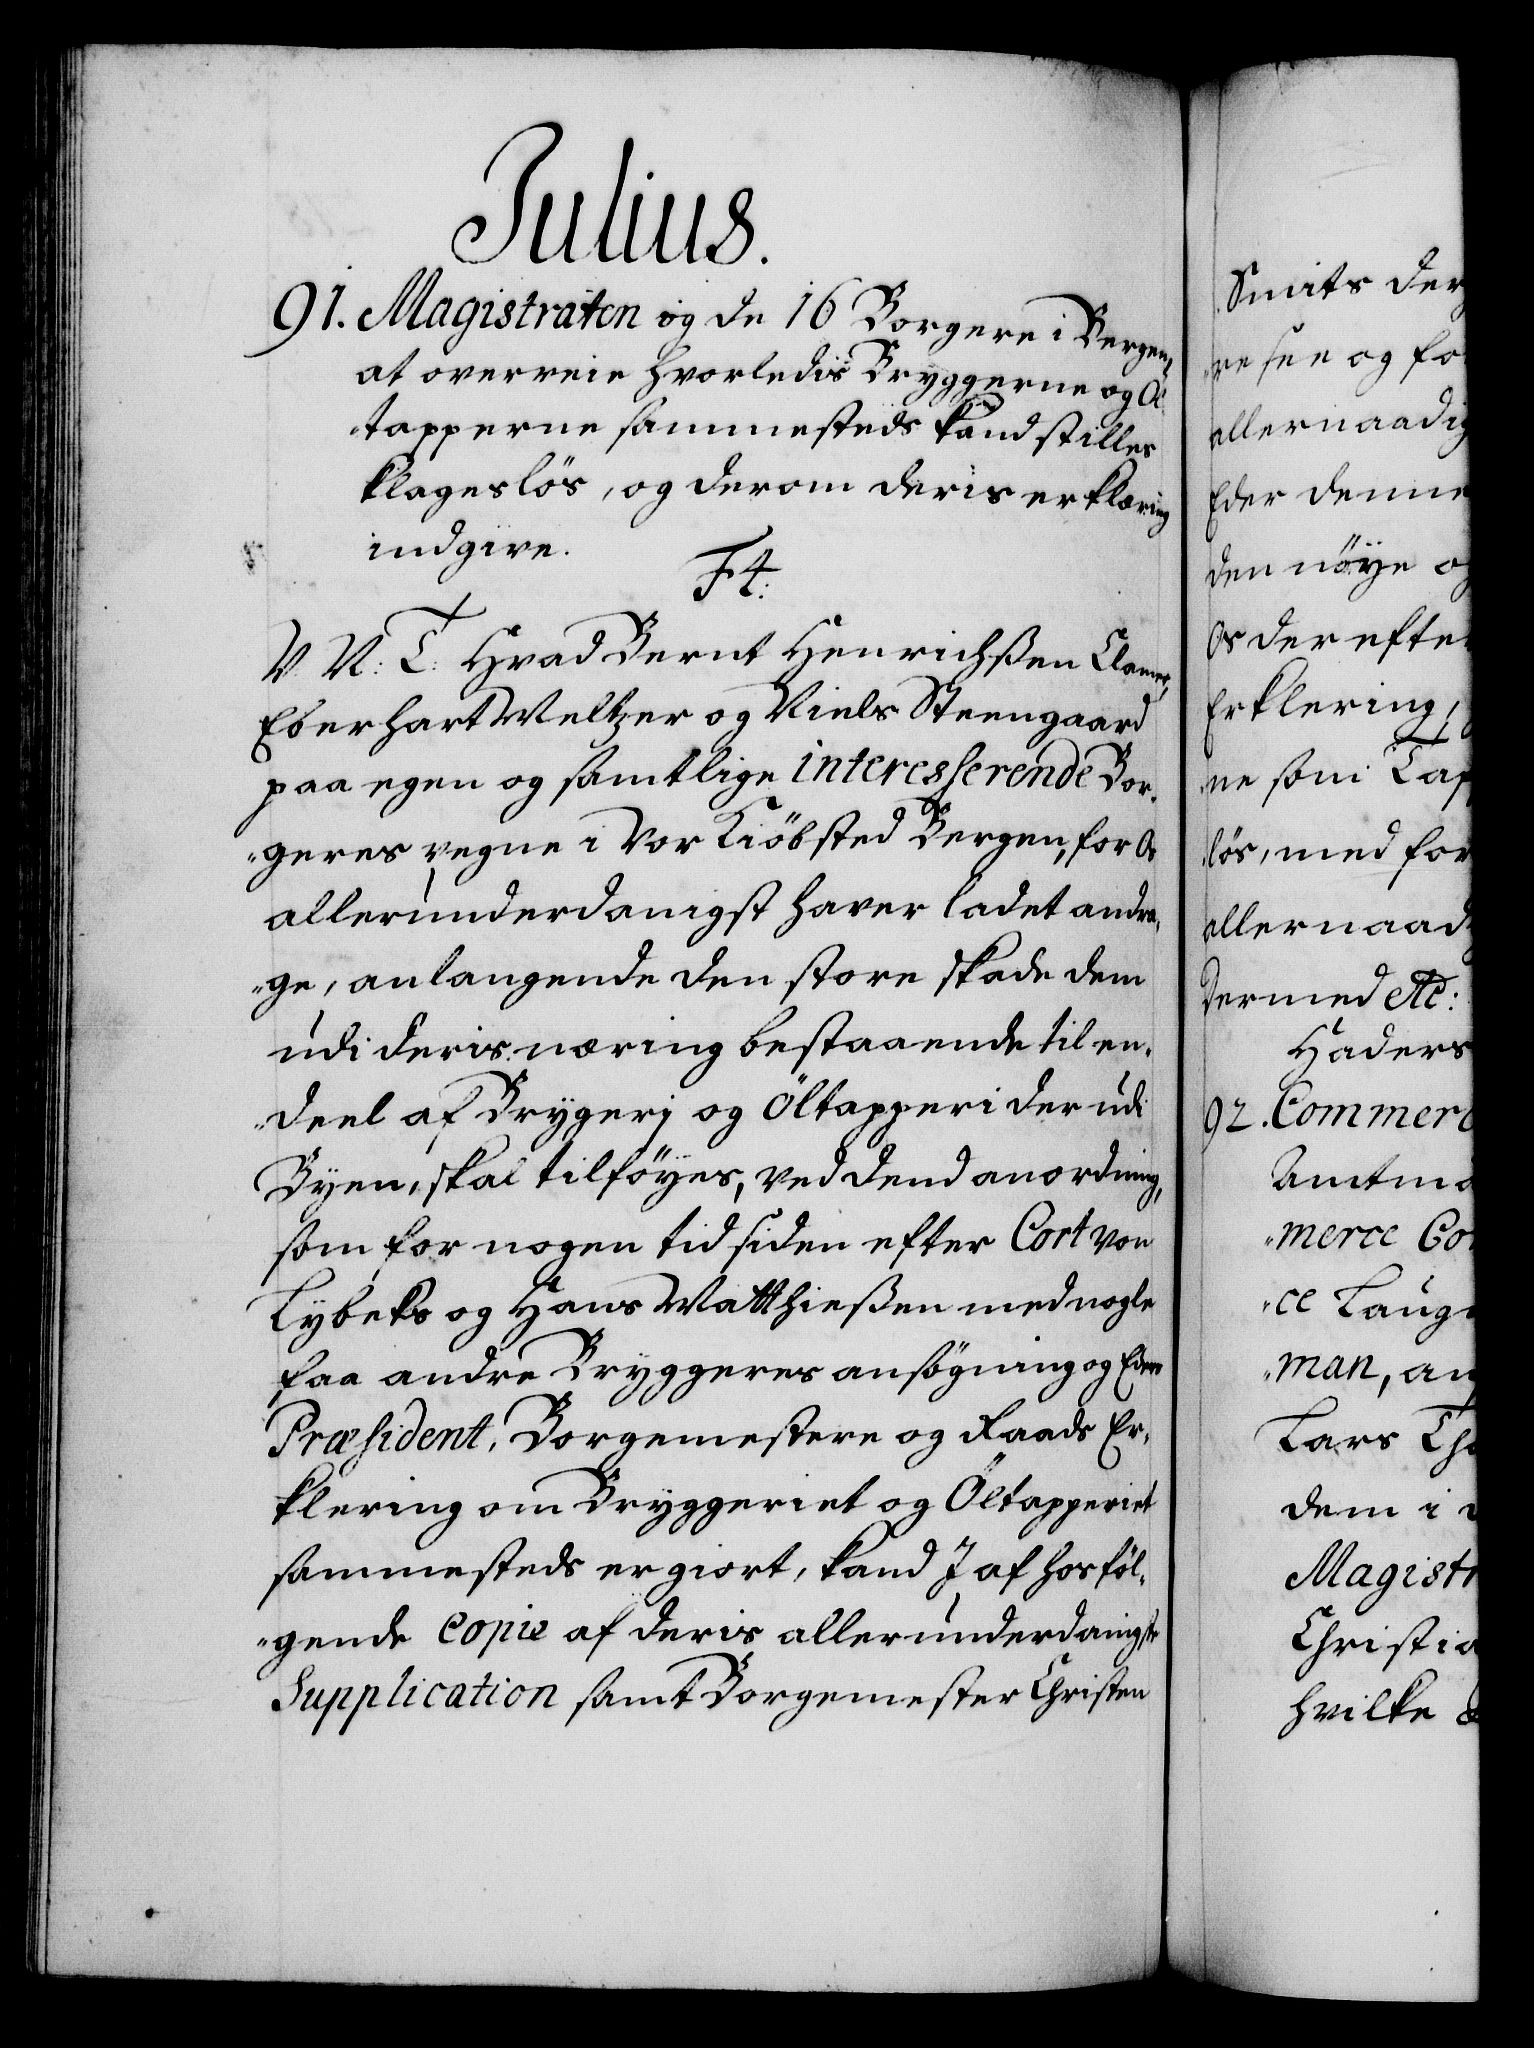 Julius.
91. Magistraten og de 16 Borgere i Bergen,
at overveie hvorledis Bryggerne og Öl-
tapperne sammesteds kand stilles
klageslös, og derom deris erklæring
indgive.
F4.
V. N: T: Hvad Bernt Henrichßen Clamer,
Eberhart Weltzer og Niels Steengaard
paa egen og samtlige interesserende Bor-
"geres vegne i Vor Kiöbsted Bergen, for Os
allerunderdanigst haver ladet andra-
"ge, anlangende den store skade dem
udi deris næring bestaaende til en-
"deel af Brygerj og Öltapperi der udi
Byen, skal tilföyes, ved dend anordning,
som for nogen tid siden efter Cort von
Lybeks og Hans Matthießen med nogle
faa andre Bryggeres ansögning og Eders
Præsident, Borgemestere og Raads Er-
klering om Bryggeriet og Öltapperiet
sammesteds er giort, kand J af hosföl-
"gende copie af deris allerunderdanigste
Supplication samt Borgemester Christen
Smits der
"re see og for
allernaadig
Eder denne
den nöye og
Os der efter
Erklering,
"ne som Tap
lös, med for
allernaad
dermed etc:
Haders
92. Commerc
Amtma
"merce Co
"ce Laug
"man, an
Lars Th
dem i
Magistr
Christia
hvilke